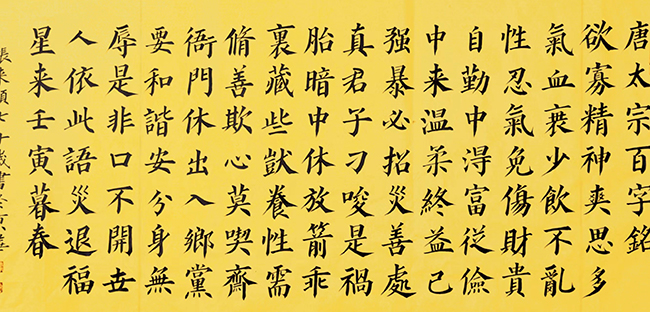 唐太宗百字銘
欲寡精神爽思多
氣血衰少飲不亂
性忍氣免傷財貴
自勤中得富從儉
中来温柔終益己
强暴必招災善處
真君子刁唆是禍
胎暗中休放箭乖
裏藏些獃養性需
脩善欺心莫喫齋
衙門休出入鄉黨
要和諧安分身無
辱是非口不開世
人依此語災退福
星来壬寅暮春
七十歲書